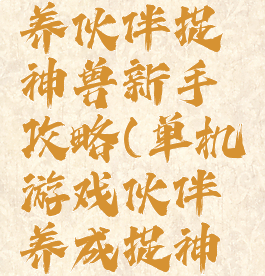 养伙伴捉
神兽新手
攻略(单机
游戏伙伴
养成捉神